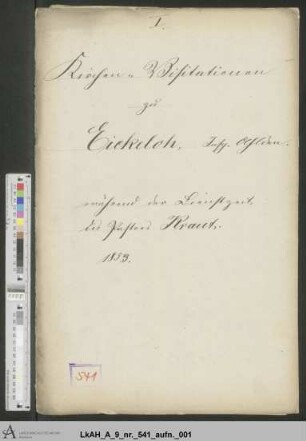 I.
Kirchen-Visitationen
zu
Eickeloh, Insp. Ahlden.
während der Dienstzeit
des Pastors Kraut.
1859.
541
LkAH_A_9_nr._541_aufn._001